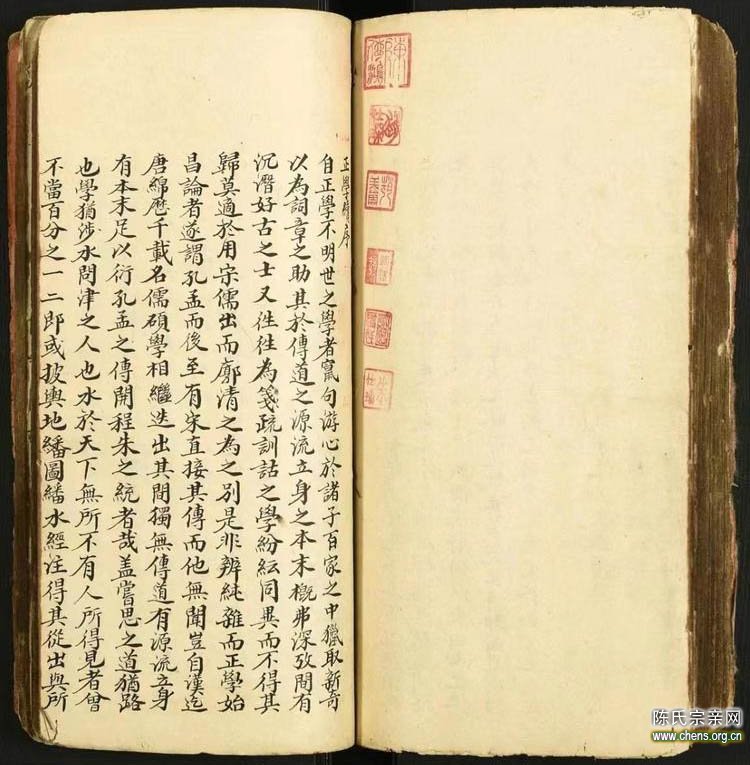 正學續序
自正學不明世之學者竄句游心於諸子百家之中獵取新奇
以為詞章之助其於傳道之源流立身之本末概弗深攷間有
沉潛好古之士又徃徃為箋疏訓詁之學紛紜同異而不得其
歸莫適於用宗儒出而廓清之為之別是非辨純雜而正學始
昌論者遂謂孔孟而後至有宋直接其傳而他無聞豈自漢迄
唐綿歷千載名儒碩學相繼迭出其間獨無傳道有源流立身
有本末足以衍孔孟之傳開程朱之統者哉盖嘗思之道猶路
也學猶涉水問津之人也水於天下無所不有人所得見者曾
不當百分之一二即或披輿地繙圖繙水經注得其從出與所
陈氏宗亲网
www.chens.org.cn